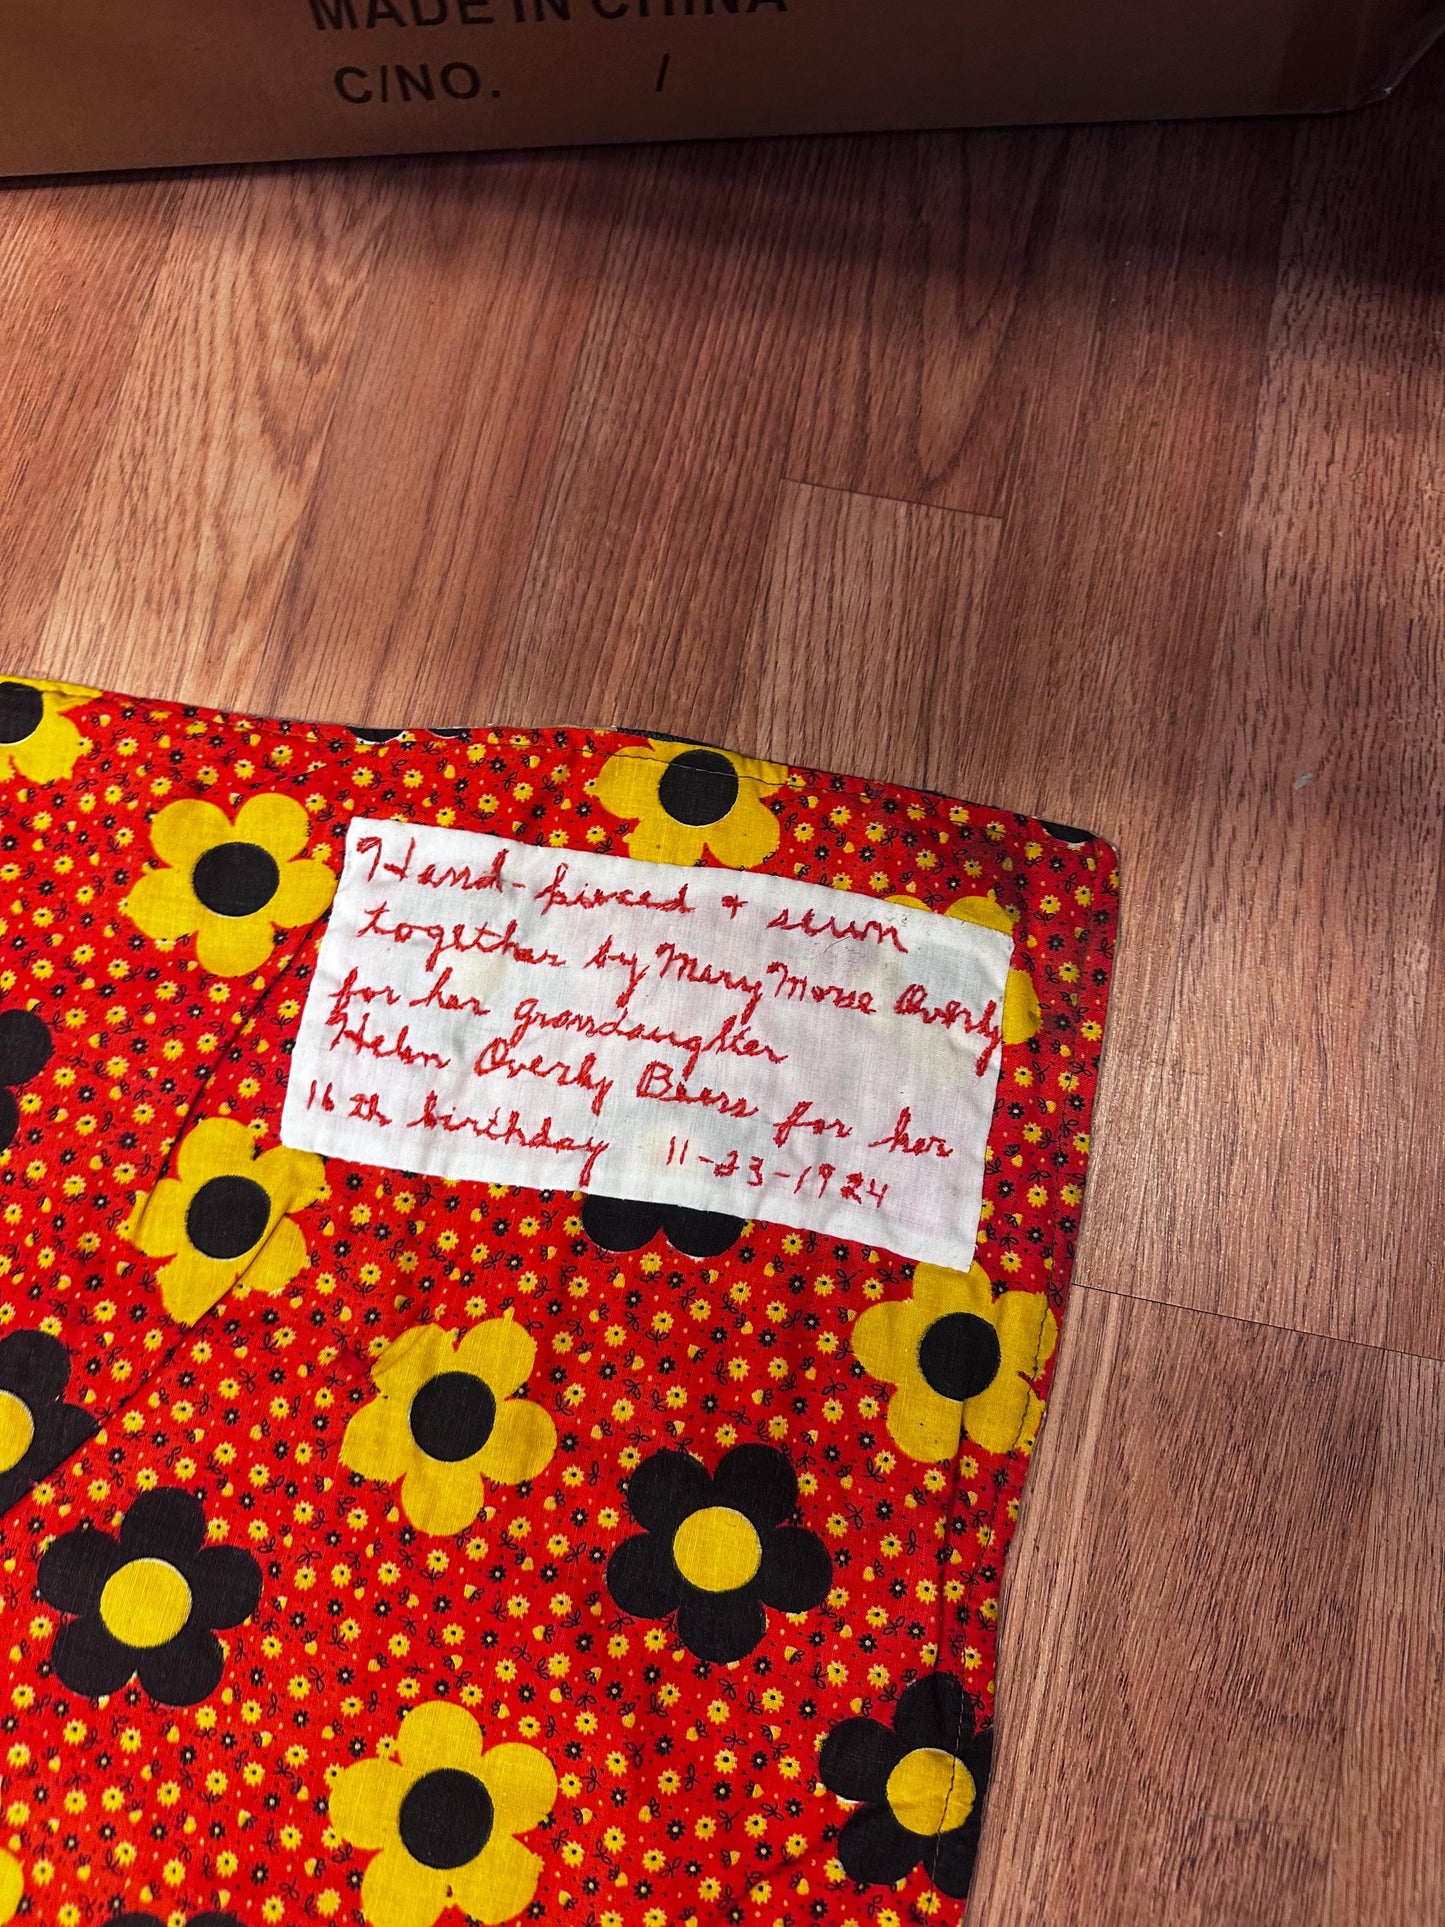 MADE IN CHINA
C/NO. /
Hand-pieced + sewn
together by Mary Morse Overly
for her grandaughter
Helen Overly Beers for her
16th birthday 11-23-1924